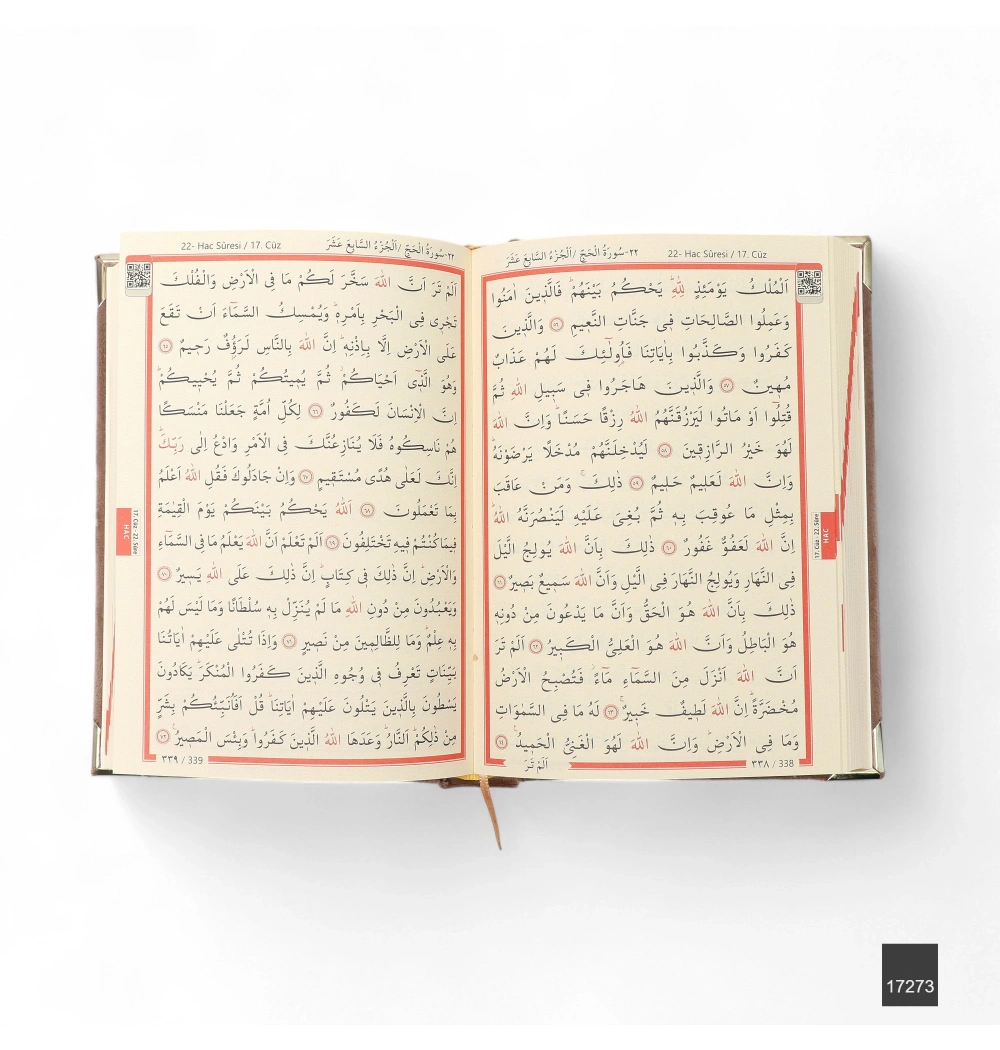 ٢٢-سُورَةُ الْحَجِّ /اَلْجُزْءُ السَّابِعَ عَشَرَ
22- Hac Sûresi / 17. Cüz
اَلْمُلْكُ يَوْمَئِذٍ لِلّٰهِۜ يَحْكُمُ بَيْنَهُمْۜ فَالَّذ۪ينَ اٰمَنُوا
وَعَمِلُوا الصَّالِحَاتِ ف۪ي جَنَّاتِ النَّع۪يمِ ﴿٥٦﴾ وَالَّذ۪ينَ
كَفَرُوا وَكَذَّبُوا بِاٰيَاتِنَا فَاُو۬لٰٓئِكَ لَهُمْ عَذَابٌ
مُه۪ينٌ۟ ﴿٥٧﴾ وَالَّذ۪ينَ هَاجَرُوا ف۪ي سَب۪يلِ اللّٰهِ ثُمَّ
قُتِلُٓوا اَوْ مَاتُوا لَيَرْزُقَنَّهُمُ اللّٰهُ رِزْقًا حَسَنًاۜ وَاِنَّ اللّٰهَ
لَهُوَ خَيْرُ الرَّازِق۪ينَ ﴿٥٨﴾ لَيُدْخِلَنَّهُمْ مُدْخَلًا يَرْضَوْنَهُۜ
وَاِنَّ اللّٰهَ لَعَل۪يمٌ حَل۪يمٌ ﴿٥٩﴾ ذٰلِكَۚ وَمَنْ عَاقَبَ
بِمِثْلِ مَا عُوقِبَ بِه۪ ثُمَّ بُغِيَ عَلَيْهِ لَيَنْصُرَنَّهُ اللّٰهُۜ
اِنَّ اللّٰهَ لَعَفُوٌّ غَفُورٌ ﴿٦٠﴾ ذٰلِكَ بِاَنَّ اللّٰهَ يُولِجُ الَّيْلَ
فِي النَّهَارِ وَيُولِجُ النَّهَارَ فِي الَّيْلِ وَاَنَّ اللّٰهَ سَم۪يعٌ بَص۪يرٌ ﴿٦١﴾
ذٰلِكَ بِاَنَّ اللّٰهَ هُوَ الْحَقُّ وَاَنَّ مَا يَدْعُونَ مِنْ دُونِه۪
هُوَ الْبَاطِلُ وَاَنَّ اللّٰهَ هُوَ الْعَلِيُّ الْكَب۪يرُ ﴿٦٢﴾ اَلَمْ تَرَ
اَنَّ اللّٰهَ اَنْزَلَ مِنَ السَّمَٓاءِ مَٓاءًۘ فَتُصْبِحُ الْاَرْضُ
مُخْضَرَّةًۜ اِنَّ اللّٰهَ لَط۪يفٌ خَب۪يرٌۚ ﴿٦٣﴾ لَهُ مَا فِي السَّمٰوَاتِ
وَمَا فِي الْاَرْضِۜ وَاِنَّ اللّٰهَ لَهُوَ الْغَنِيُّ الْحَم۪يدُ۟ ﴿٦٤﴾
٣٣٨ / 338
اَلَمْ تَرَ
17. Cüz - 22. Sûre
HAC
٢٢-سُورَةُ الْحَجِّ /اَلْجُزْءُ السَّابِعَ عَشَرَ
22- Hac Sûresi / 17. Cüz
اَلَمْ تَرَ اَنَّ اللّٰهَ سَخَّرَ لَكُمْ مَا فِي الْاَرْضِ وَالْفُلْكَ
تَجْر۪ي فِي الْبَحْرِ بِاَمْرِه۪ۜ وَيُمْسِكُ السَّمَٓاءَ اَنْ تَقَعَ
عَلَى الْاَرْضِ اِلَّا بِاِذْنِه۪ۜ اِنَّ اللّٰهَ بِالنَّاسِ لَرَؤُ۫فٌ رَح۪يمٌ ﴿٦٥﴾
وَهُوَ الَّذ۪ٓي اَحْيَاكُمْۘ ثُمَّ يُم۪يتُكُمْ ثُمَّ يُحْي۪يكُمْۜ
اِنَّ الْاِنْسَانَ لَكَفُورٌ ﴿٦٦﴾ لِكُلِّ اُمَّةٍ جَعَلْنَا مَنْسَكًا
هُمْ نَاسِكُوهُ فَلَا يُنَازِعُنَّكَ فِي الْاَمْرِ وَادْعُ اِلٰى رَبِّكَۜ
اِنَّكَ لَعَلٰى هُدًى مُسْتَق۪يمٍ ﴿٦٧﴾ وَاِنْ جَادَلُوكَ فَقُلِ اللّٰهُ اَعْلَمُ
بِمَا تَعْمَلُونَ ﴿٦٨﴾ اَللّٰهُ يَحْكُمُ بَيْنَكُمْ يَوْمَ الْقِيٰمَةِ
ف۪يمَا كُنْتُمْ ف۪يهِ تَخْتَلِفُونَ ﴿٦٩﴾ اَلَمْ تَعْلَمْ اَنَّ اللّٰهَ يَعْلَمُ مَا فِي السَّمَٓاءِ
وَالْاَرْضِۜ اِنَّ ذٰلِكَ ف۪ي كِتَابٍۜ اِنَّ ذٰلِكَ عَلَى اللّٰهِ يَس۪يرٌ ﴿٧٠﴾
وَيَعْبُدُونَ مِنْ دُونِ اللّٰهِ مَا لَمْ يُنَزِّلْ بِه۪ سُلْطَانًا وَمَا لَيْسَ لَهُمْ
بِه۪ عِلْمٌۜ وَمَا لِلظَّالِم۪ينَ مِنْ نَص۪يرٍ ﴿٧١﴾ وَاِذَا تُتْلٰى عَلَيْهِمْ اٰيَاتُنَا
بَيِّنَاتٍ تَعْرِفُ ف۪ي وُجُوهِ الَّذ۪ينَ كَفَرُوا الْمُنْكَرَۜ يَكَادُونَ
يَسْطُونَ بِالَّذ۪ينَ يَتْلُونَ عَلَيْهِمْ اٰيَاتِنَاۜ قُلْ اَفَاُنَبِّئُكُمْ بِشَرٍّ
مِنْ ذٰلِكُمْۜ اَلنَّارُۜ وَعَدَهَا اللّٰهُ الَّذ۪ينَ كَفَرُواۜ وَبِئْسَ الْمَص۪يرُ۟ ﴿٧٢﴾
٣٣٩ / 339
17. Cüz - 22. Sûre
HAC
17273